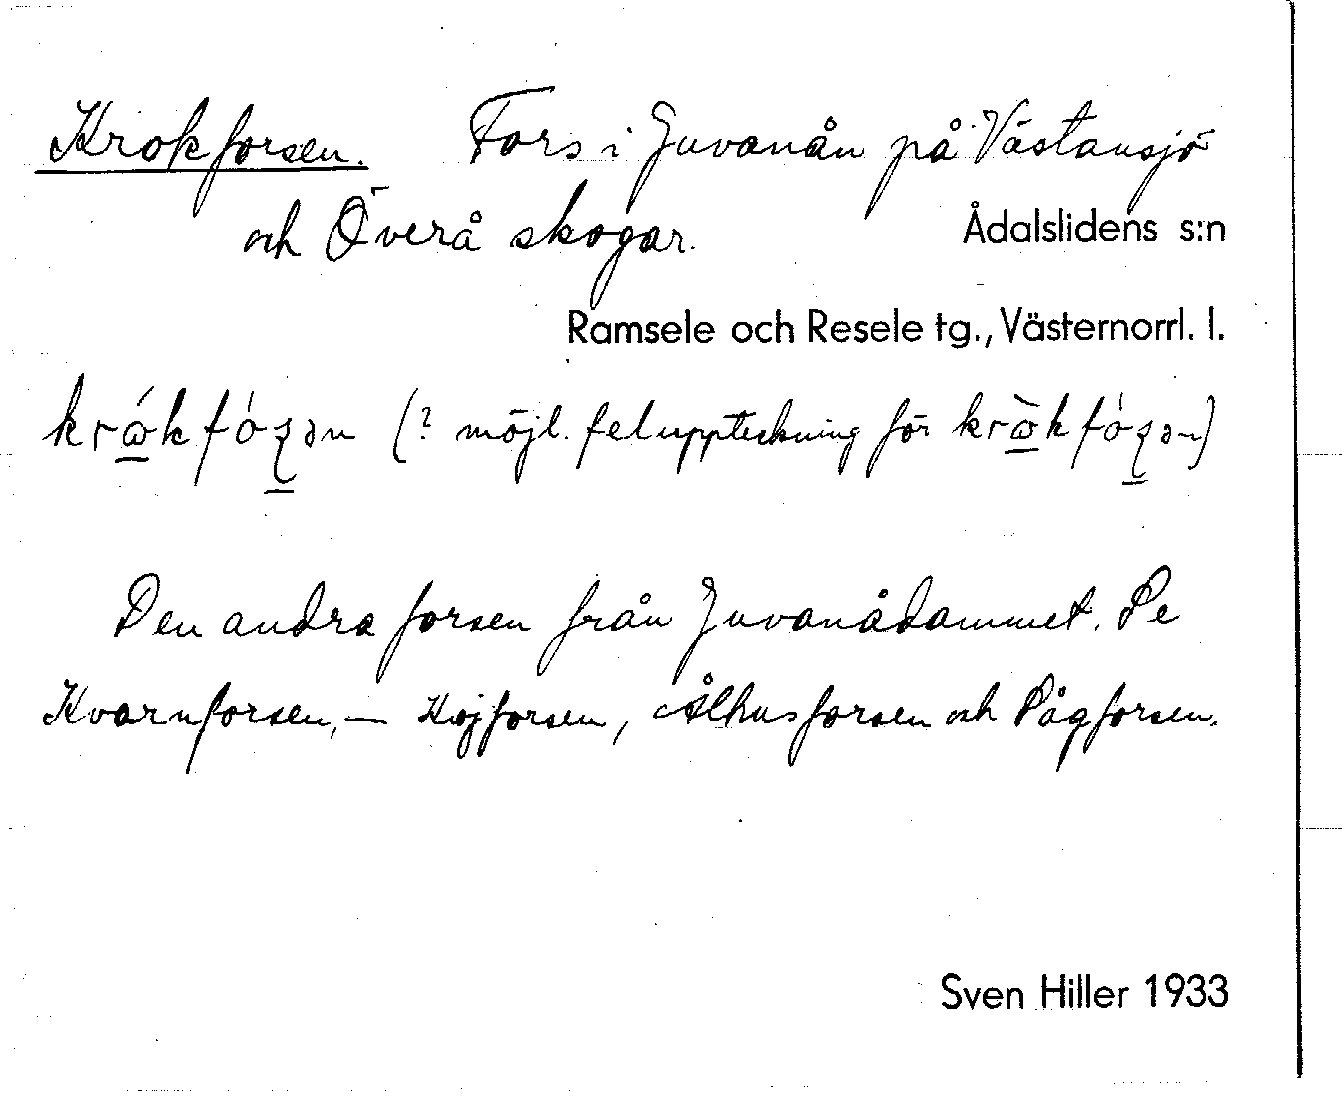 Krokforsen. Fors i Juvanån på Västansjö
och Överå skogar. Ådalslidens s:n
Ramsele och Resele tg., Västernorrl. l.
(? möjl. feluppteckning för
Den andra forsen från Juvanådammet. Se
Kvarnforsen, – Höjforsen, Ålhusforsen och Pågforsen.
Sven Hiller 1933